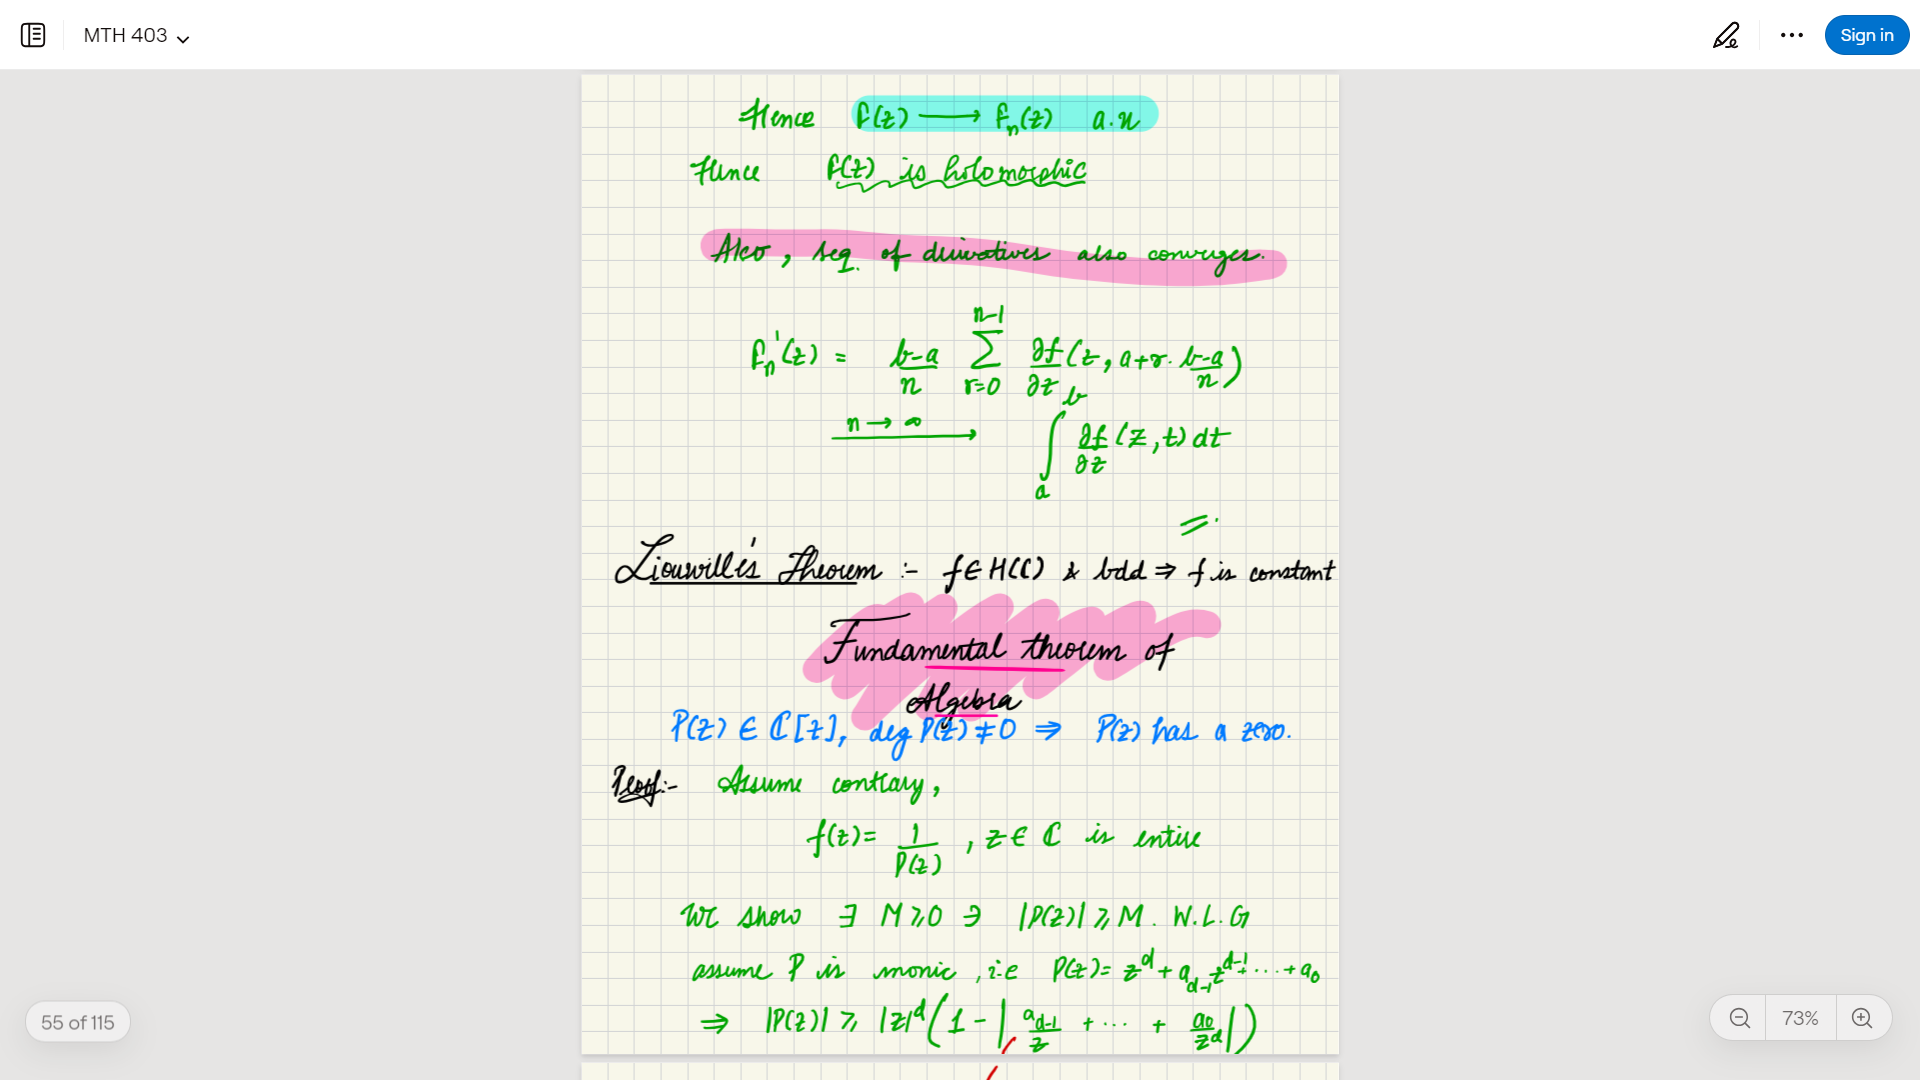 MTH 403
Sign in
Hence f(z) ⟶ fₙ(z) a.u
Hence f(z) is holomorphic
Also, seq. of derivatives also converges.
fₙ'(z) = \frac{b-a}{n} \sum_{r=0}^{n-1} \frac{∂f}{∂z}(z, a+r·\frac{b-a}{n})
\xrightarrow{n→∞} \int_a^b \frac{∂f}{∂z}(z,t)dt
Liouville's Theorem :- f∈H(ℂ) & bdd ⇒ f is constant
Fundamental theorem of
Algebra
P(z) ∈ ℂ[z], deg P(z) ≠ 0 ⇒ P(z) has a zero.
Proof:- Assume contrary,
f(z) = \frac{1}{P(z)}, z∈ℂ is entire
We show ∃ M⩾0 ∋ |P(z)| ⩾ M. W.L.G
assume P is monic, i.e P(z) = z^d + a_{d-1}z^{d-1} + ⋯ + a_0
⇒ |P(z)| ⩾ |z|^d (1 - |\frac{a_{d-1}}{z} + ⋯ + \frac{a_0}{z^d}|)
55 of 115
73%